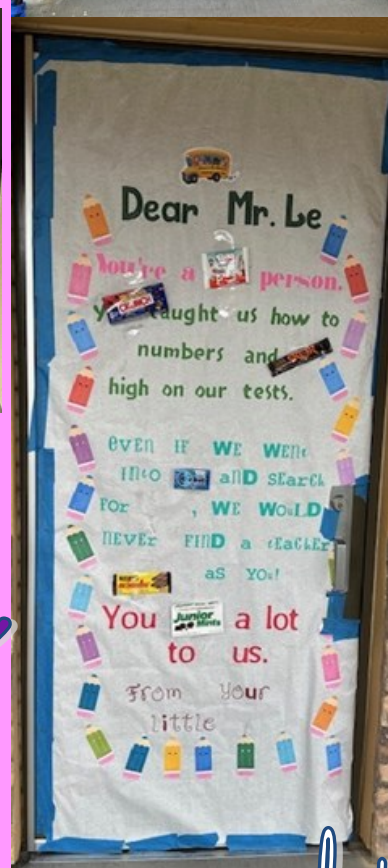 Dear Mr. Le
You're a person.
taught us how to
CRUNCH
numbers and
high on our tests.
even IF WE WENt
INtO aND sEarch
FOR , WE WOULD
NEVEr FIND a tEaCHEr
as YOU!
You Junior Mints a lot
to us.
From Your
little